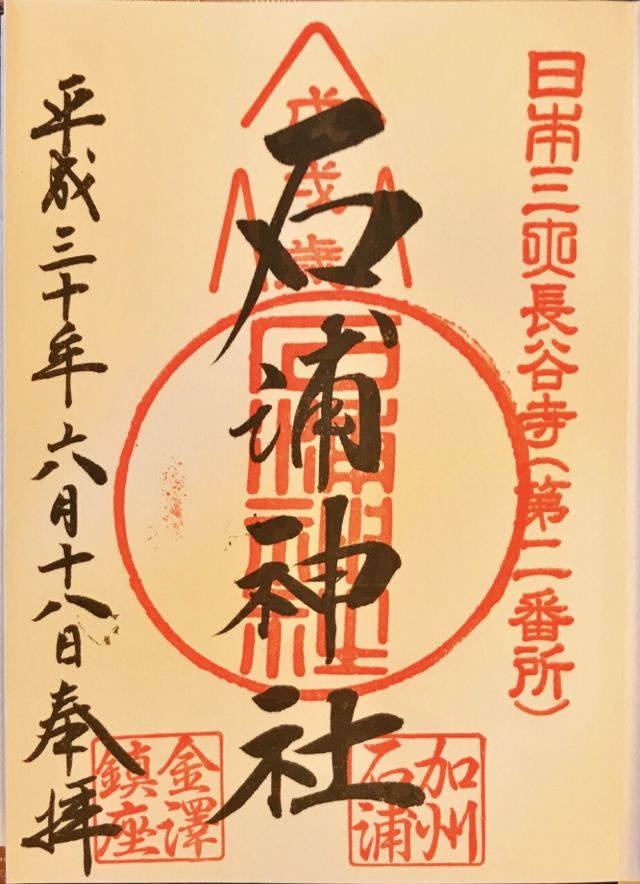 日本三大長谷寺（第二番所）
戊戌歳
石浦神社
石浦神社
加州
石浦
金澤
鎮座
平成三十年六月十八日奉拝